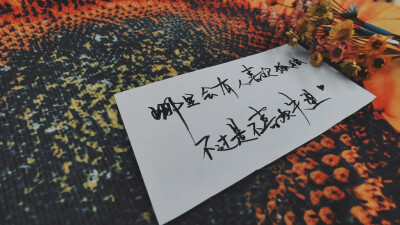 哪里会有人喜欢孤独
不过是不喜欢失望